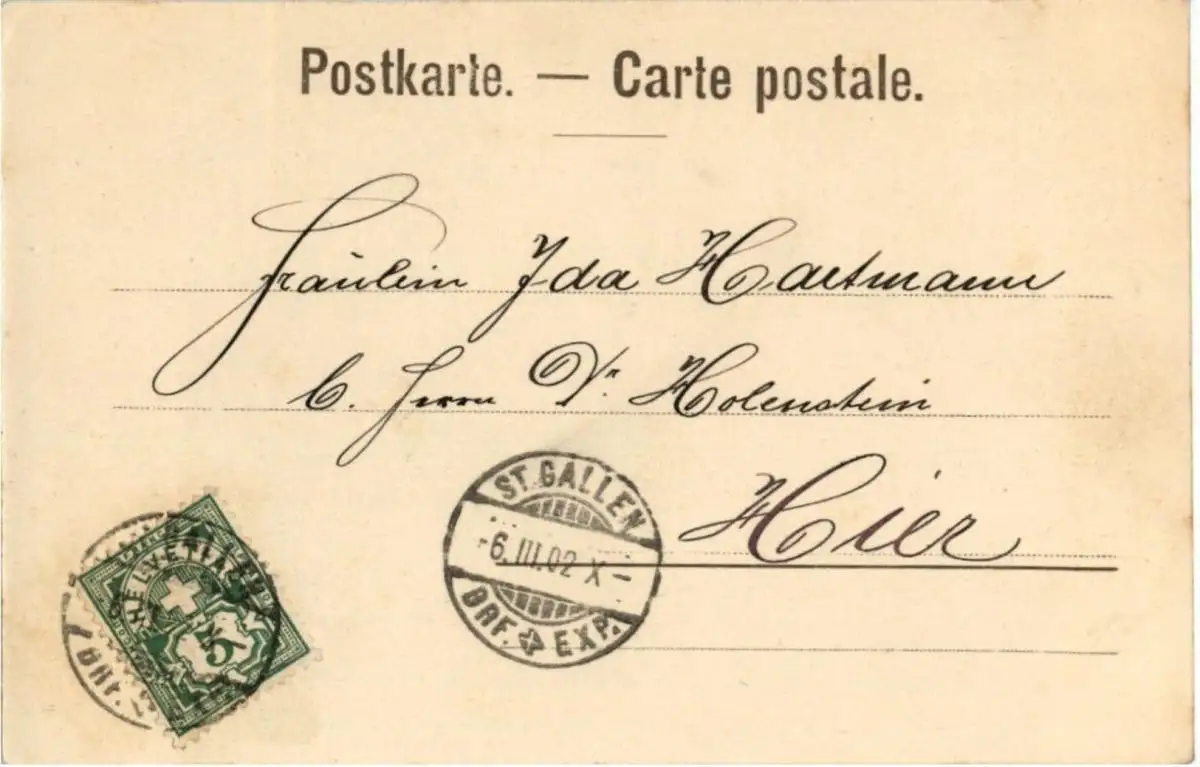 Postkarte. — Carte postale.
Fräulein Ida Hartmann
b. Herrn Dr. Holenstein
Hier
ST. GALLEN
-6.III.02 X-
BRF. EXP.
HELVETIA
5